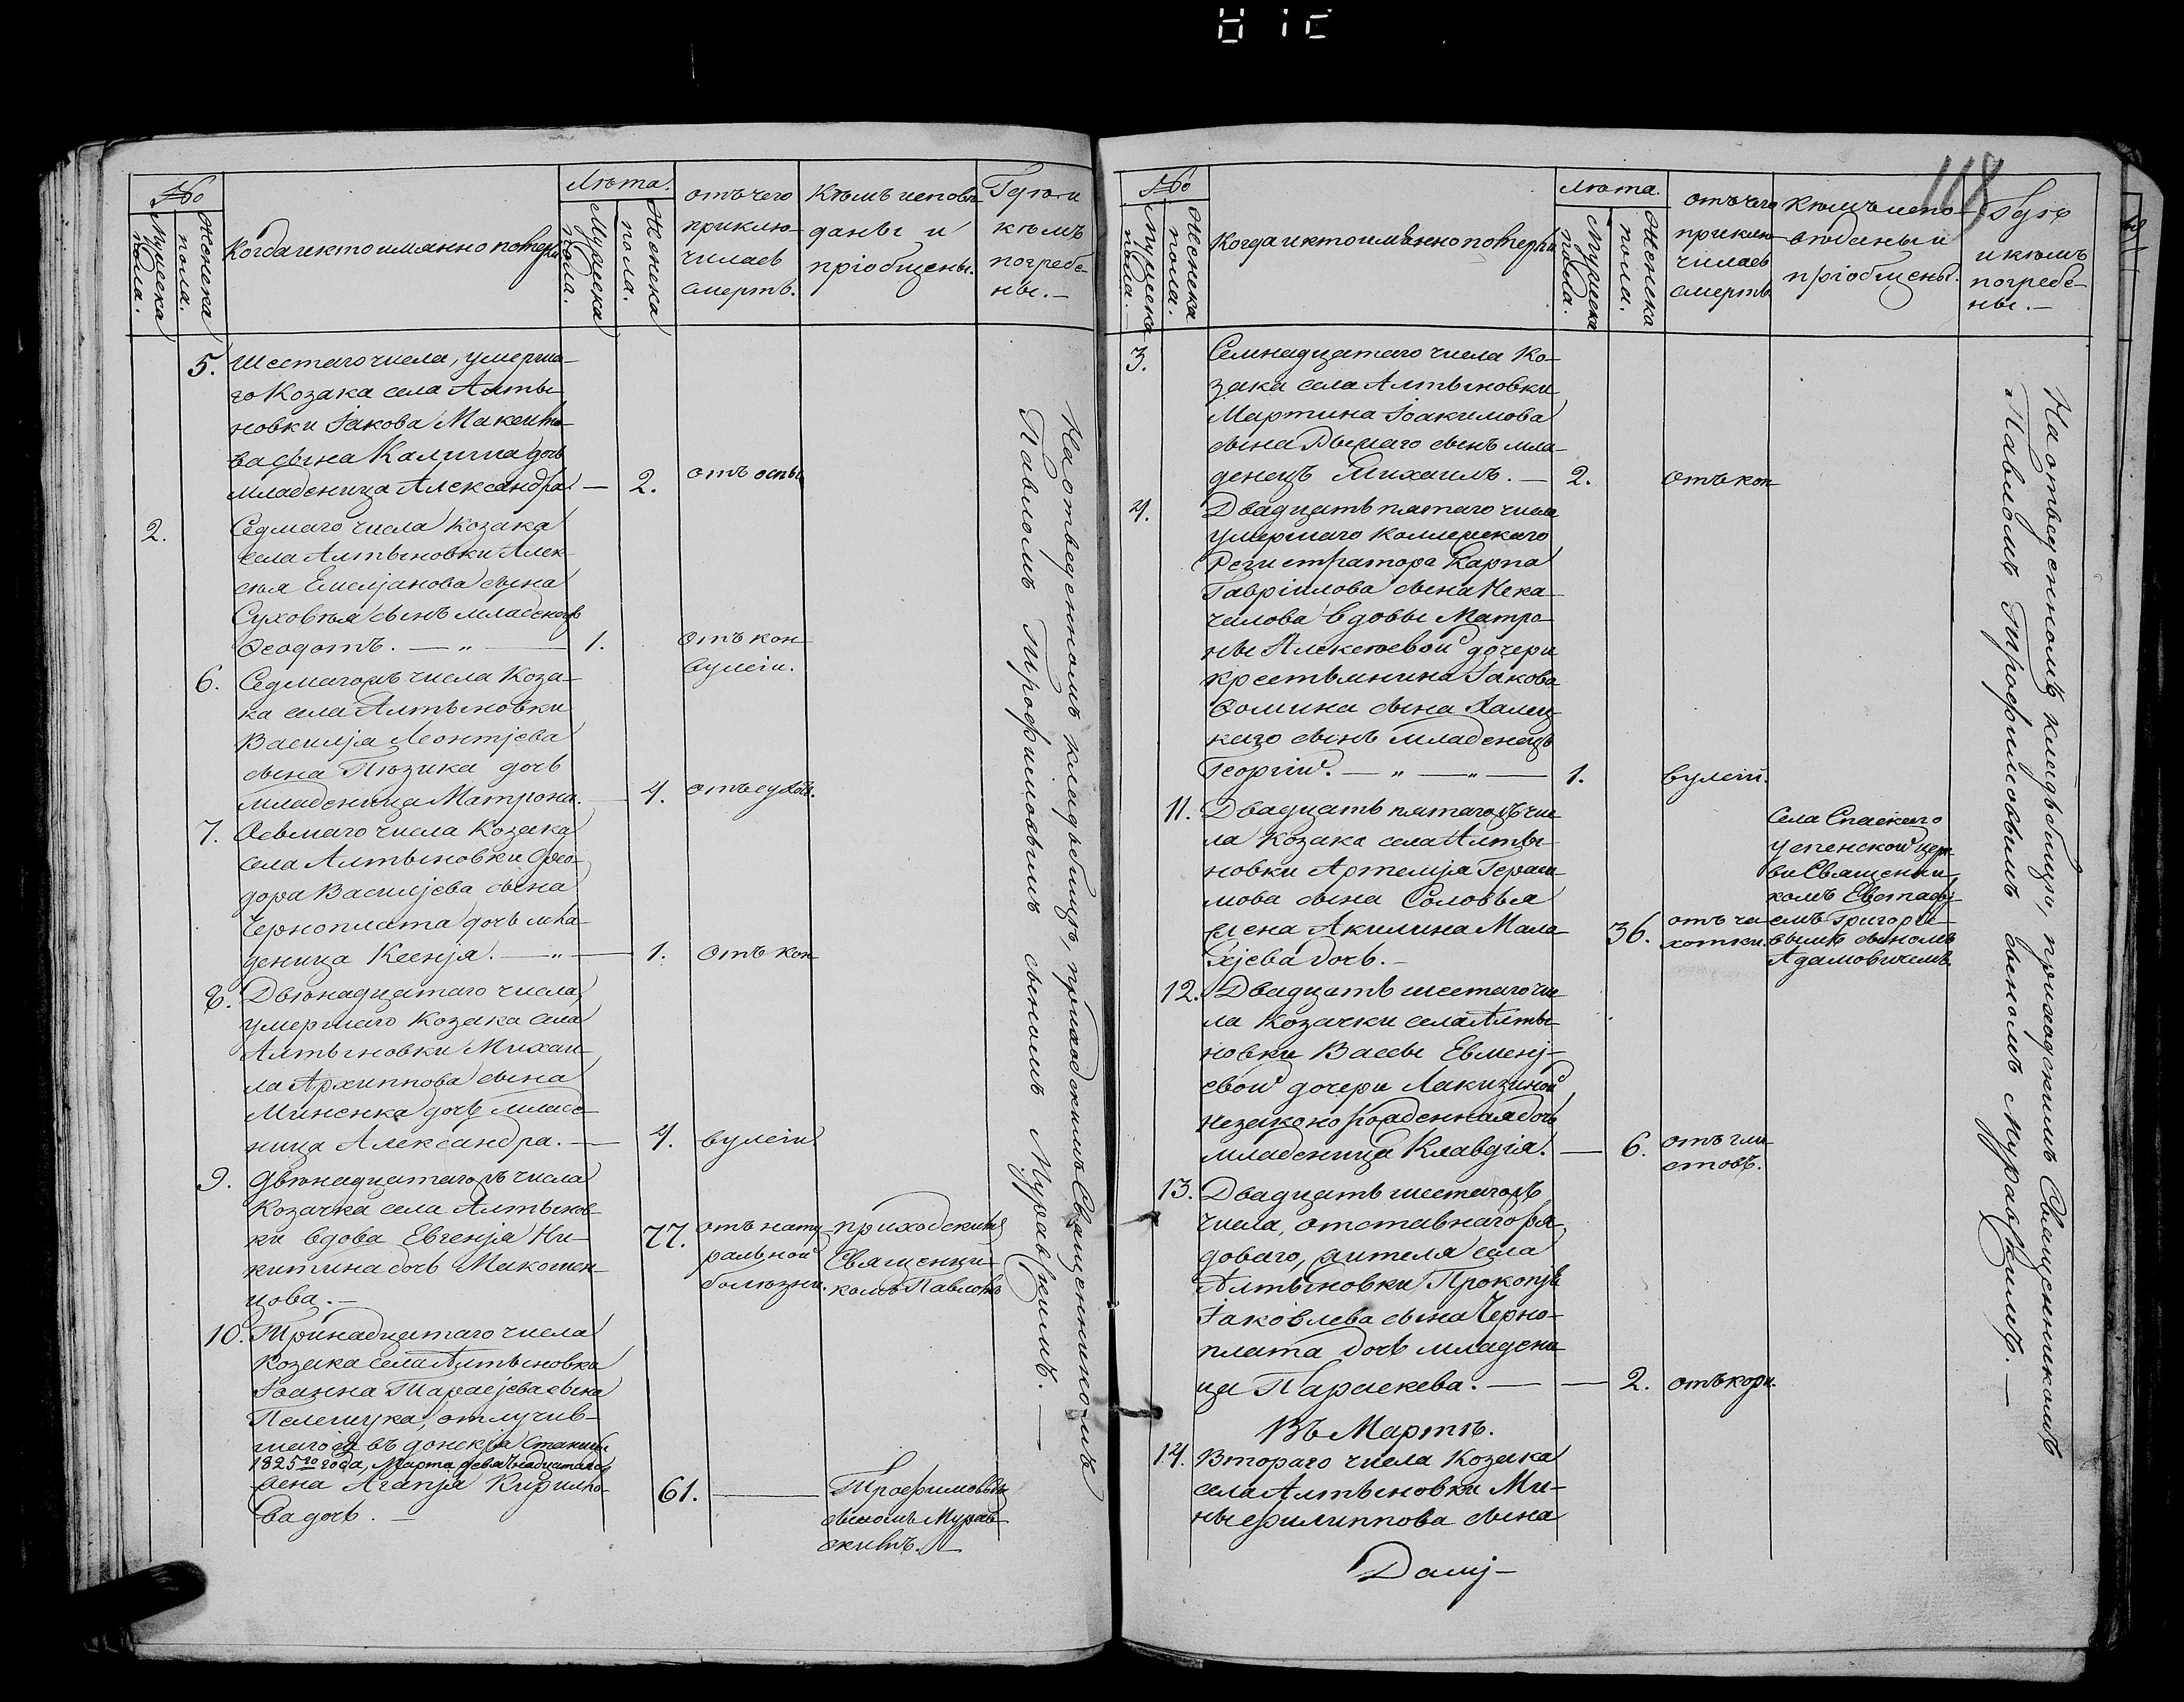 118
№
Мужеска пола.
Женска пола.
Когда и кто имянно померъ
Лѣта.
Мужеска пола.
Женска пола.
отъ чего
приклю-
чилась
смерть.
Кѣмъ исповѣ-
даны и
пріобщены.
Гдѣ и
кѣмъ
погребе-
ны. —
5. Шестаго числа, умерша-
го Козака села Алты-
новки Іакова
сына дочь
младеница Александра. — 2. отъ оспы
2. Седмаго числа козака
села Алтыновки Алек-
сѣя Емелјанова сына
Суховѣя сынъ младенецъ
Ѳеодотъ. — „ — 1. отъ кон-
вулсіи.
6. Седмагожъ числа Коза-
ка села Алтыновки
Василја Леонтјева
сына Пюзика дочь
младеница Матрона. — 4. отъ сухот.
7. Осьмаго числа Козака
села Алтыновки Ѳео-
дора Василјева сына
Черноплата дочь мла-
деница Ксенја. — „ — 1. отъ кон-
8. Двѣнадцатаго числа,
умершаго Козака села
Алтыновки Михаи-
ла Архиппова сына
Миненка дочь младе-
ница Александра. — 4. вулсіи
9. Двѣнадцатагожъ числа
Козачка села Алтынов-
ки вдова Евгенја Ни-
китина дочь
цова. — 77. отъ нату-
ральной
болѣзни.
приходскимъ
Священни-
комъ Павломъ
10. Тринадцатаго числа
козака села Алтыновки
Іоанна Тарасјева сына
Пелешука, отлучив-
шагося въ донскја станицы
1825го года, Марта девятнадцатаго
жена Агапја Кирило-
ва дочь. — 61. —
Трофимовымъ
сыномъ Мурав-
скимъ.
На отведенномъ кладьбищѣ, приходскимъ Священникомъ
Павломъ Трофимовымъ сыномъ Муравскимъ. —
№
Мужеска пола. —
Женска пола.
Когда и кто имянно померъ
Лѣта.
Мужеска пола.
Женска пола.
отъ чего
приклю-
чилась
смерть
Кѣмъ испо-
вѣданы и
пріобщены.
Гдѣ
и кѣмъ
погребе-
ны. —
3. Семнадцатаго числа Ко-
зака села Алтыновки
Мартина Іоакимова
сына сынъ мла-
денецъ Михаилъ. — 2. отъ кон-
4. Двадцать пятаго числа
умершаго Коллежскаго
Регистратора Карпа
Гавріилова сына Нека-
чалова вдовы Матро-
ны Алексѣевой дочери
крестьянина Іакова
Ѳомина сына Халец-
каго сынъ младенецъ
Георгій. — „ — „ — 1. вулсіи.
11. Двадцать пятагожъ чис-
ла Козака села Алты-
новки Артемја Гераси-
мова сына Соловья
жена Акилина Мала-
хјева дочь. — 36. отъ ча-
хотки.
Села Спаскаго
Успенской церк-
ви Священни-
комъ Евстафј-
емъ Григорје-
вымъ сыномъ
Адамовичемъ.
12. Двадцать шестаго чис-
ла Козачки села Алты-
новки Вассы Евменј-
евой дочери Лакизиной
незаконорожденная дочь
младеница Клавдія. — 6. отъ гли-
стовъ.
13. Двадцать шестагожъ
числа, отставнаго ря-
доваго, жителя села
Алтыновки Прокопја
Іаковлева сына Черно-
плата дочь младени-
ца Параскева. — — 2. отъ кори.
Въ Мартѣ.
14. Втораго числа Козака
села Алтыновки Ми-
ны Филиппова сына
Дащ-
На отведенномъ кладьбищѣ, приходскимъ Священникомъ
Павломъ Трофимовымъ сыномъ Муравскимъ. —